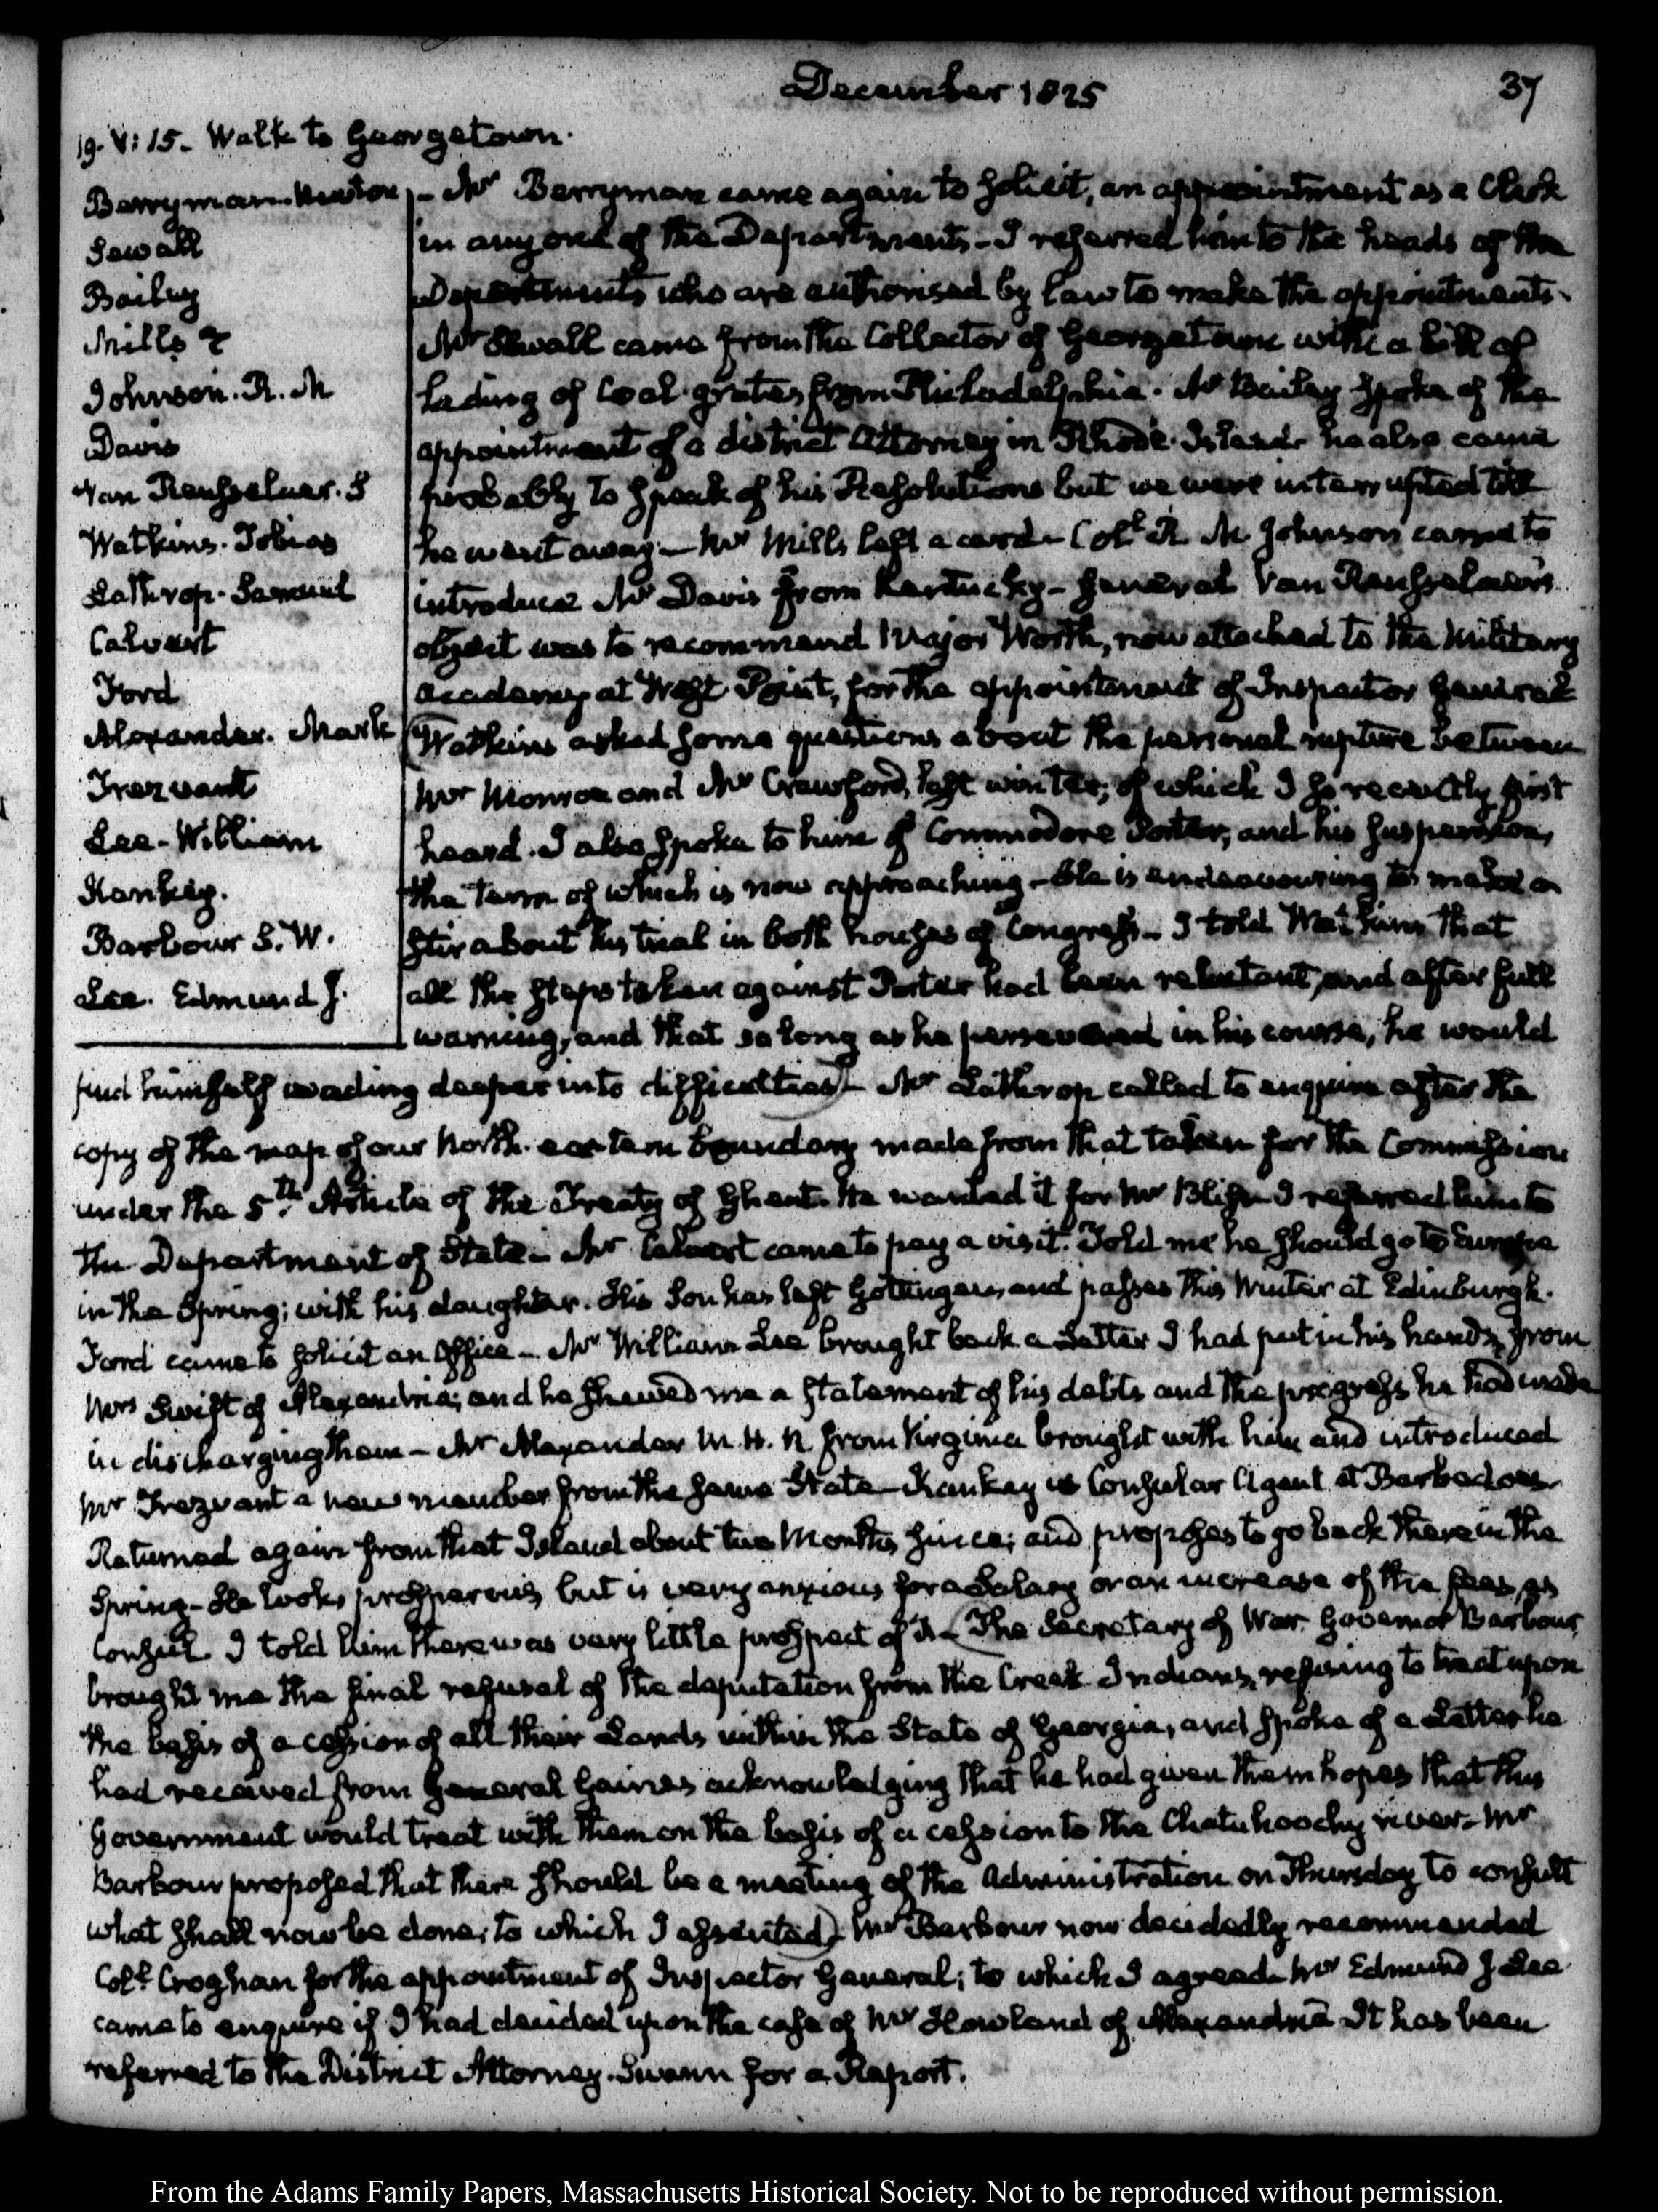 December 1825
37
19. V: 15. Walk to Georgetown.
Berryman. Newton
Sewall
Bailey
Mills
Johnson. R. M
Davis
Van Rensselaer. S
Watkins. Tobias
Lathrop. Samuel
Calvert
Ford
Alexander. Mark
Trezvant
Lee. William
Kankey.
Barbour S. W.
Lee. Edmund J.
Mr Berryman came again to solicit, an appointment as a Clerk
in any one of the Departments. I referred him to the heads of the
Departments who are authorised by law to make the appointments.
Mr Sewall came from the Collector of Georgetown with a bill of
lading of Coal-grates from Philadelphia. Mr Bailey spoke of the
appointment of a district Attorney in Rhode-Island. he also came
probably to speak of his Resolutions but we were interrupted till
he went away. Mr Mills left a card. Coll. R. M. Johnson came to
introduce Mr Davis from Kentucky. General Van Rensselaer's
object was to recommend Major Worth, now attached to the Military
academy at West-Point, for the appointment of Inspector General
(Watkins asked some questions about the personal rupture between
Mr Monroe and Mr Crawford, last winter; of which I so recently first
heard. I also spoke to him of Commodore Porter, and his suspension,
the term of which is now approaching. He is endeavouring to make a
stir about his trial in both houses of Congress. I told Watkins that
all the steps taken against Porter had been reluctant, and after full
warning, and that so long as he persevered in his course, he would
find himself wading deeper into difficulties) Mr Lathrop called to enquire after the
copy of the map of our North-eastern boundary made from that taken for the Commission
under the 5th. Article of the Treaty of Ghent. He wanted it for Mr Bliss. I referred him to
the Department of State. Mr Calvert came to pay a visit. Told me he should go to Europe
in the Spring; with his daughter. His Son has left Gottingen, and passes this Winter at Edinburgh.
Ford came to solicit an Office. Mr William Lee brought back a Letter I had put in his hands, from
Mrs Swift of Alexandria; and he shewed me a statement of his debts and the progress he had made
in discharging them. Mr Alexander M. H. R. from Virginia brought with him and introduced
Mr Trezvant a new member from the same State. Kankey is Consular Agent at Barbadoes.
Returned again from that Island about two Months since; and proposes to go back there in the
Spring. He looks prosperous, but is very anxious for a Salary or an increase of the fees, as
Consul. I told him there was very little prospect of it. (The Secretary of War. Governor Barbour,
brought me the final refusal of the deputation from the Creek Indians, refusing to treat upon
the basis of a cession of all their Lands within the State of Georgia, and spoke of a Letter he
had received from General Gaines acknowledging that he had given them hopes that this
Government would treat with them on the basis of a cession to the Chatuhoochy river. Mr
Barbour proposed that there should be a meeting of the Administration on Thursday to consult
what shall now be done; to which I assented) Mr Barbour now decidedly recommended
Coll. Croghan for the appointment of Inspector General; to which I agreed. Mr Edmund J Lee
came to enquire if I had decided upon the case of Mr Howland of Alexandria. It has been
referred to the District Attorney. Swann for a Report.
From the Adams Family Papers, Massachusetts Historical Society. Not to be reproduced without permission.